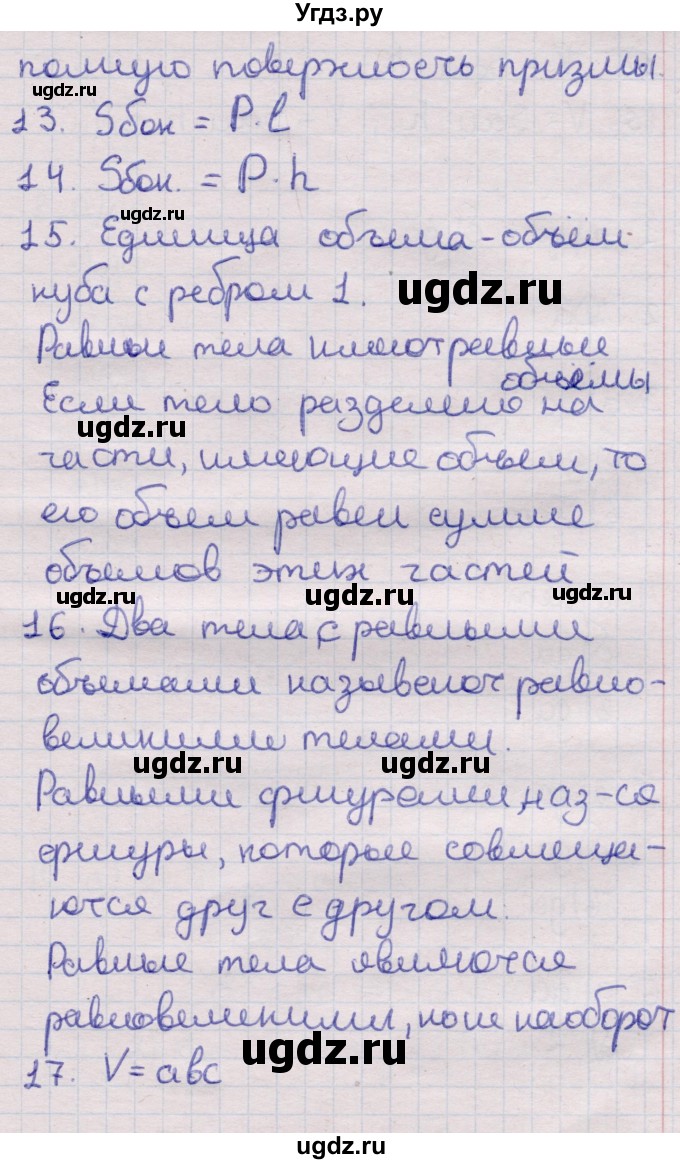 Угдз.ру
полную поверхность призмы.
ugdz.ru
13. Sбок = P·l
14. Sбок. = P·h
ugdz.ru
15. Единица объема - объем
куба с ребром 1. ugdz.ru
Равные тела имеют равные
объемы
Если тело разделено на
ugdz.ru
части, имеющие объем, то
его объем равен сумме
объемов этих частей
ugdz.ru ugdz.ru ugdz.ru
16. Два тела с равными
объемами называют равно-
великими телами.
ugdz.ru ugdz.ru
Равными фигурами наз-ся
фигуры, которые совмеща-
ются друг с другом.
Равные тела являются
равновеликими, но не наоборот
ugdz.ru
17. V = abc
ugdz.ru